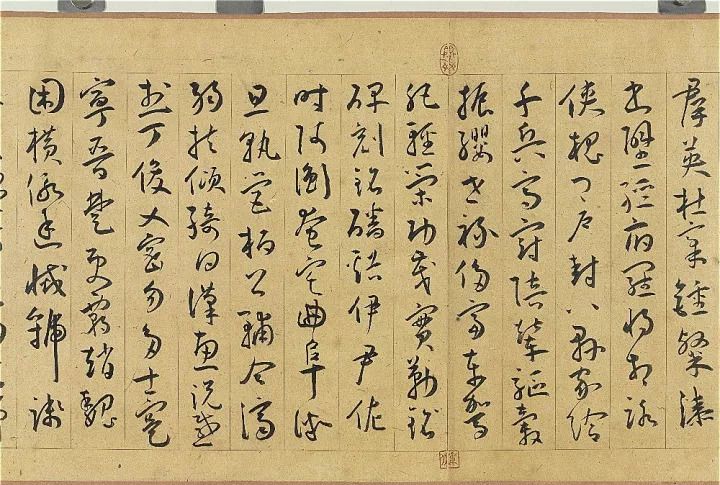 群英杜稾鍾隸漆
書壁經府羅將相路
俠槐卿戶封八縣家給
千兵高冠陪輦驅轂
振纓世祿侈富車駕
肥輕策功茂實勒銘
碑刻銘磻谿伊尹佐
時阿衡奄宅曲阜微
旦孰營桓公輔合濟
弱扶傾綺回漢惠說感
武丁俊乂密勿多士寔
寧晉楚更霸趙魏
困橫假途滅虢踐